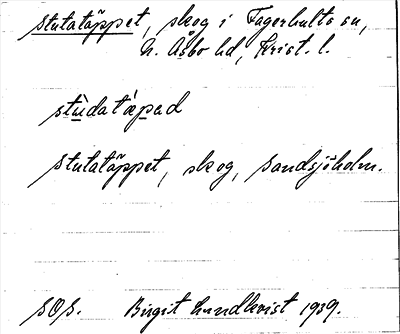 stutatäppet, skog i Fagerhults sn,
N. Åsbo hd, Krist. l.
stùdatàpad
stutatäppet, skog, Sandsjöholm.
SOS. Birgit Lundkvist 1939.